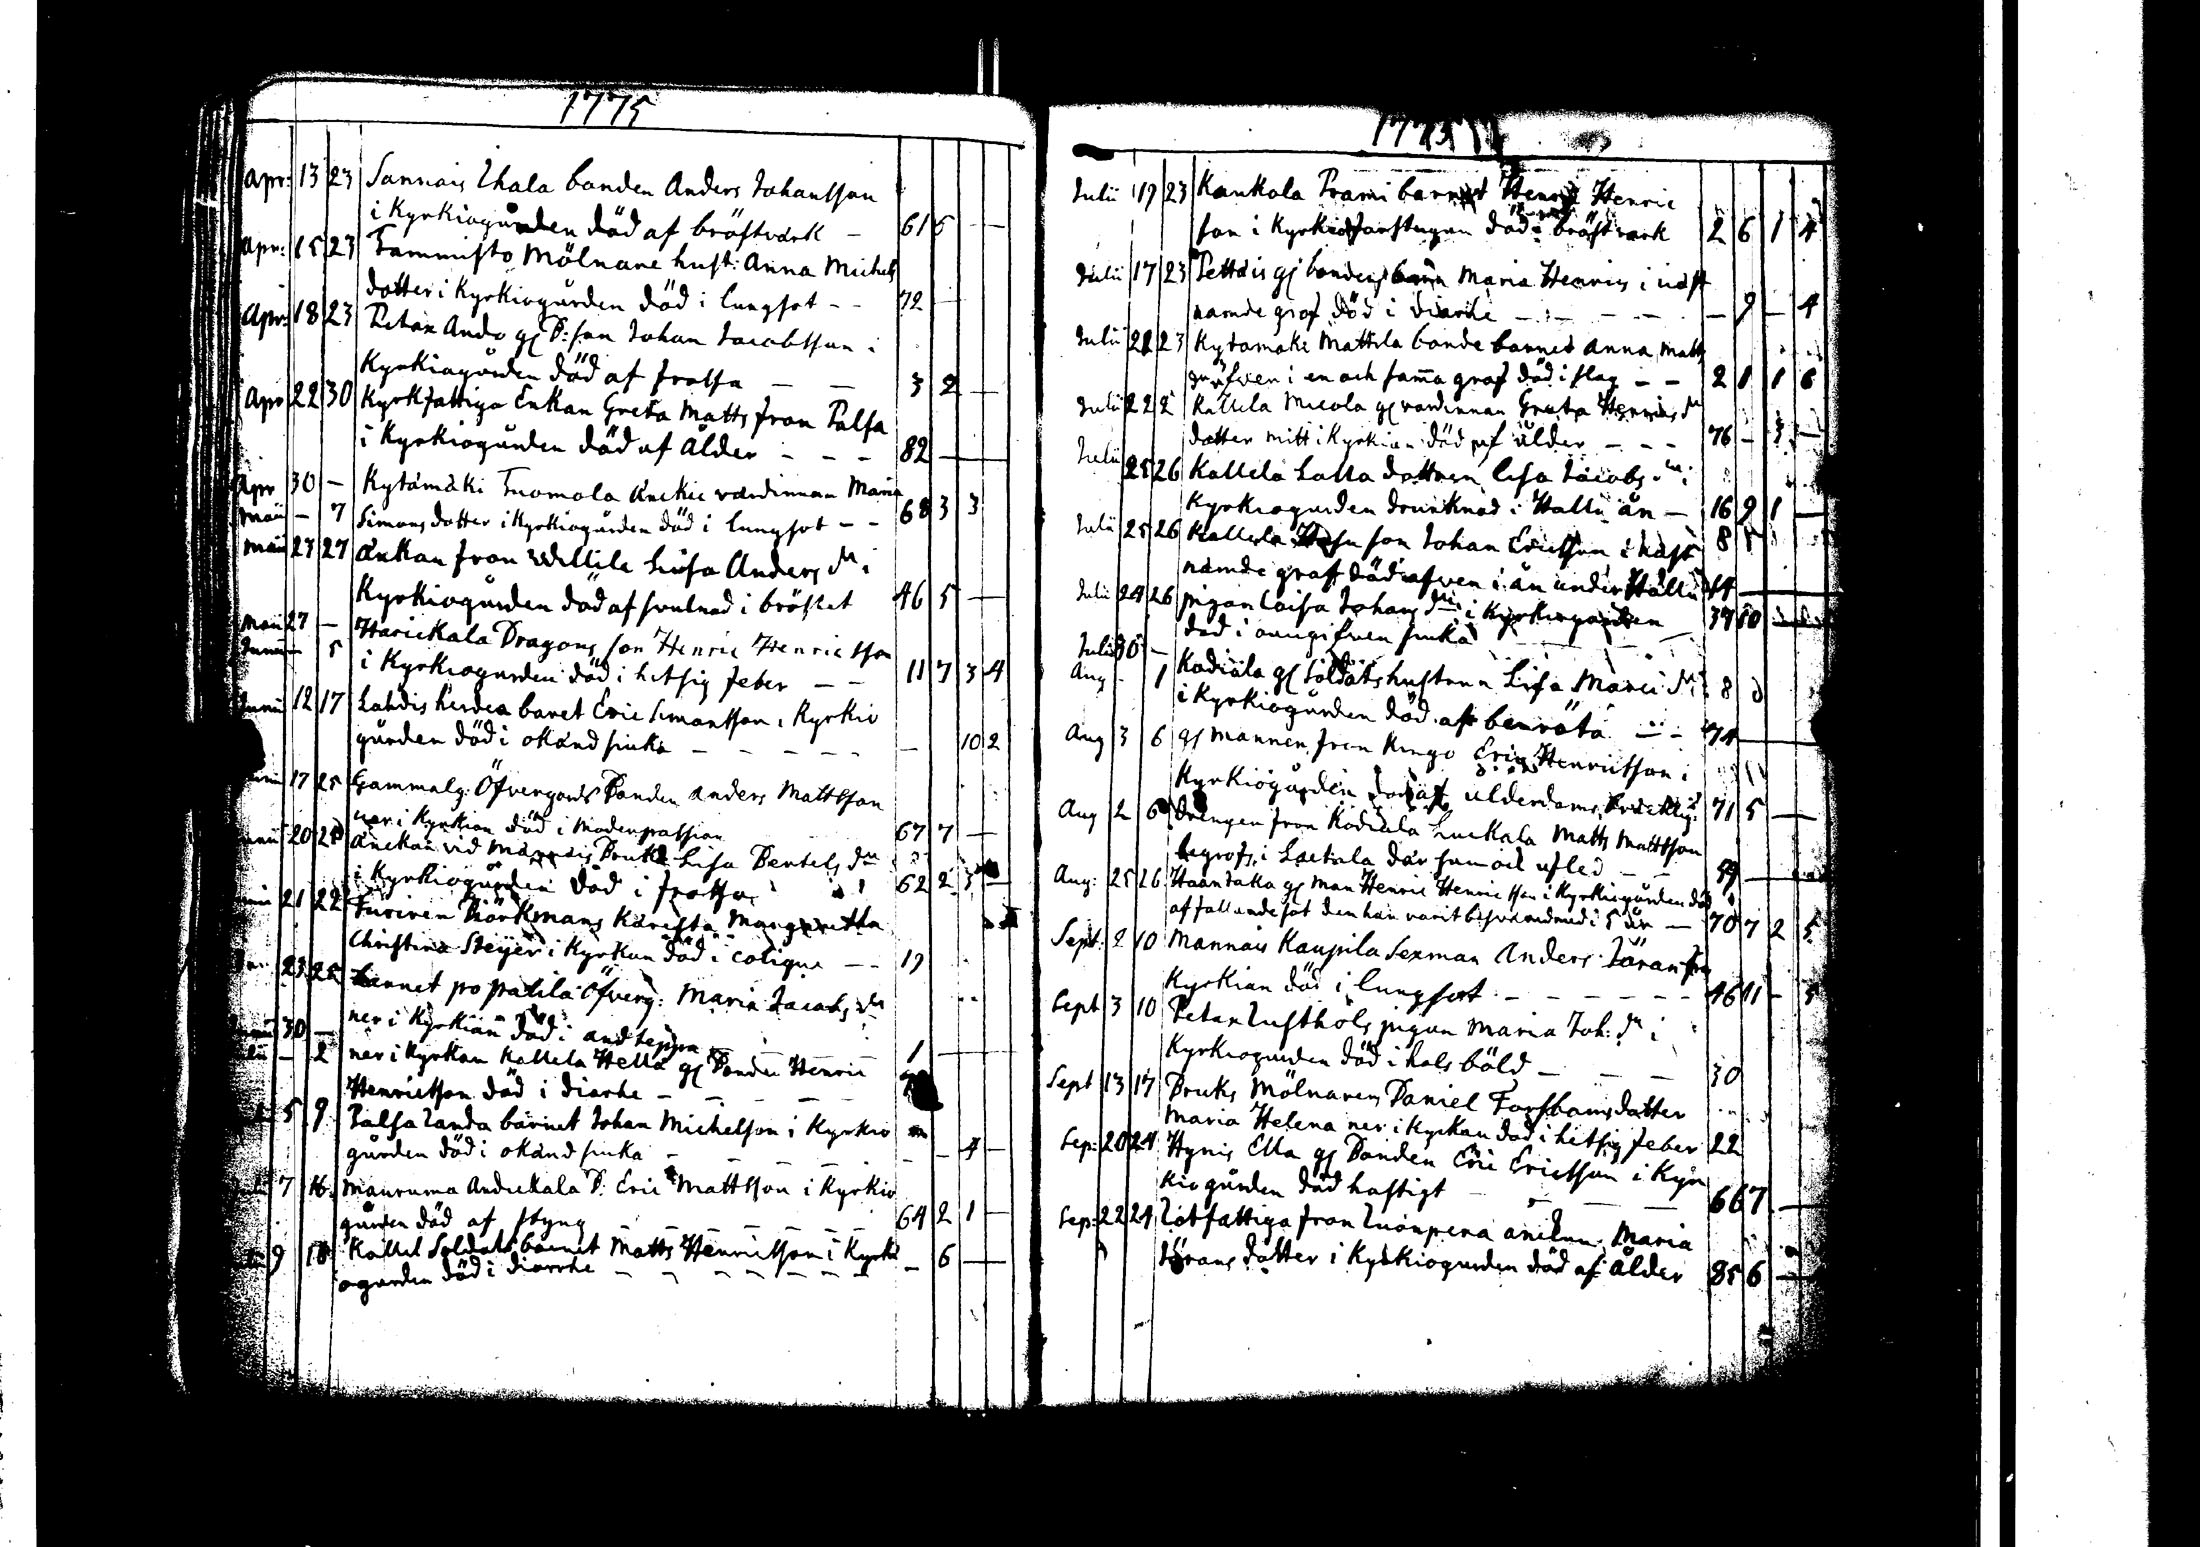 1775
Apr: 13 23 Sannais Uhala bonden Anders Johansson
i Kyrkiogården död af bröstvärk - 61 5 - -
Apr: 15 23 Tammisto Mölnare hust: Anna Michels
dotter i Kyrkiogården död i lungsot - - 72 -
Apr: 18 23 Petax Ando gl B: son Johan Jacobsson i
Kyrkiogården död af frossa - - 3 2 -
Apr 22 30 Kyrkfattiga Enkan Greta Matts från Palsa
i Kyrkiogården död af Ålder - - - 82 -
Apr 30 - Kytämäki Tuomola änckie värdinnan Maria
Maii - 7 Simons dotter i Kyrkiogården död i lungsot - - 68 3 3
Maii 23 27 Änkan från Willile Luisa Anders dr i
Kyrkiogården död af svulnad i bröstet 46 5 -
Maii 27 - Harickala Dragons son Henric Henricsson
Junii - 5 i Kyrkiogården död i hetsig feber - - 11 7 3 4
Junii 12 17 Lahdis herdea barnet Eric Simonsson i Kyrkio
gården död i okänd siuka - - - - - - 10 2
17 25 Gammalg: Öfvergårds Bonden Anders Mattsson
ner i Kyrkian död i Moderpassion 67 7 -
20 25 Änckan vid Bruk Lisa Bertels dr
i Kyrkiogården död i frossa 62 2 3 -
21 22 Furiren Biörkmans Käresta Margaretha
Christina Steijer i Kyrkan död i colique - - 19
23 25 barnet på Patila Öfverg: Maria Jacobs dr
30 - ner i Kyrkian död i andteppa - - - 1 -
- 2 ner i Kyrkan Kallela Hella gl Bonden Henric
Henricsson död i diarhe - - - - -
5 9 Palsa barnet Johan Michelson i Kyrkio
gården död i okänd siuka - - - - - 4 -
7 16 Mauruma Andickala B: Eric Mattsson i Kyrkio
gården död af styng - - - - - 64 2 1 -
9 Kallel Soldats barnet Matts Henricsson i Kyrki
ogården död i diarrhe - - - - - - - - 6 -
1775
Julii 19 23 Kankola Prami barnet Henric Henric
son i Kyrkio död i bröstvärk 2 6 1 4
Julii 17 23 Pettäis gl bondens barn Maria Henrics i
namde graf död i diarhe - - - - - 9 - 4
Julii 22 23 Kytämäki Mattila bonde barnet Anna Matts
dr äfven i en och samma graf död i slag - - 2 1 1 6
Julii 22 2 Kallela Micola gl värdinnan Greta Henrics dr
dotter mitt i Kyrkian död af ålder - - - 76 - 3 -
Julii 25 26 Kallela Lalla dottren Lisa Jacobs dr i
Kyrkiogården drunknad i Hallu ån - 16 9 1 -
Julii 25 26 Kallela son Johan Ericsson i näst
nämde graf död äfven i ån under Hallu 14
Julii 24 26 pigan Caisa Johans dr i Kyrkiogården 37 10
död i siuka
Julii 30 -
Aug - 1 Kodiala gl Soldats hustrun Lisa Marci dr 8
i Kyrkiogården död af benröta - - 74 -
Aug 3 6 gl Mannen från Kingo Eric Henricsson i
Kyrkiogården död af ålderdoms bräcklig: 71 5 -
Aug 2 6 drengen från Kodiala Luckala Matts Mattsson
begrofs i Laitala där som och afled - - 59 -
Aug: 25 26 gl Man Henric Henricsson i Kyrkiogården död
af fallandesot den han varit besvärad med i 5 år - 70 7 2 5
Sept: 2 10 Mannais Kaupila Sexman Anders Jöransson
Kyrkian död i lungsot - - - - - - 46 11 - 5
Sept 3 10 Petax Lusthols pigan Maria Joh: dr i
Kyrkiogården död i hals böld - - - 30
Sept 13 17 Bruks Mölnarens Daniel Forsboms dotter
Maria Helena ner i Kyrkan död i hetsig feber 22
Sep: 20 24 Hynis Ella gl Bonden Eric Ericsson i Kyr
kiogården död hastigt - - - - 66 7 -
Sep: 22 24 Rotfattiga från änckan Maria
Jörans dotter i Kyrkiogården död af ålder 85 6 -